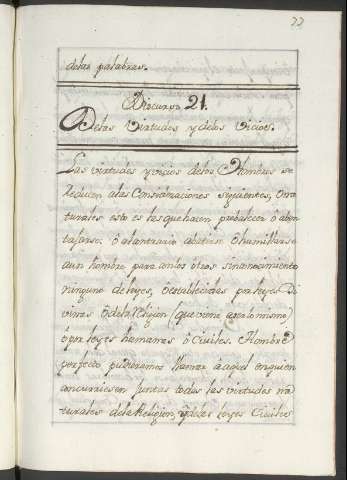 77
delas palabras.
Discurso 21.
Delas Virtudes y delos Vicios.
Las virtudes y vicios delos Hombres se
reducen alas Consideraciones siguientes, ò na
turales esto es las que hacen prebalecer ò aben
tajarse, ò al contrario abatirse ò humillarse
a un hombre para con los otros sin conocimiento
ninguno de leyes, ò establecidas por leyes Di
vinas ò dela Religion (que viene a ser lo mismo)
ò por leyes humanas ò Civiles. Hombre
perfecto pudieramos llamar à aquel en quien
concurriesen juntas todas las virtudes na
turales dela Religion, y delas leyes Civiles